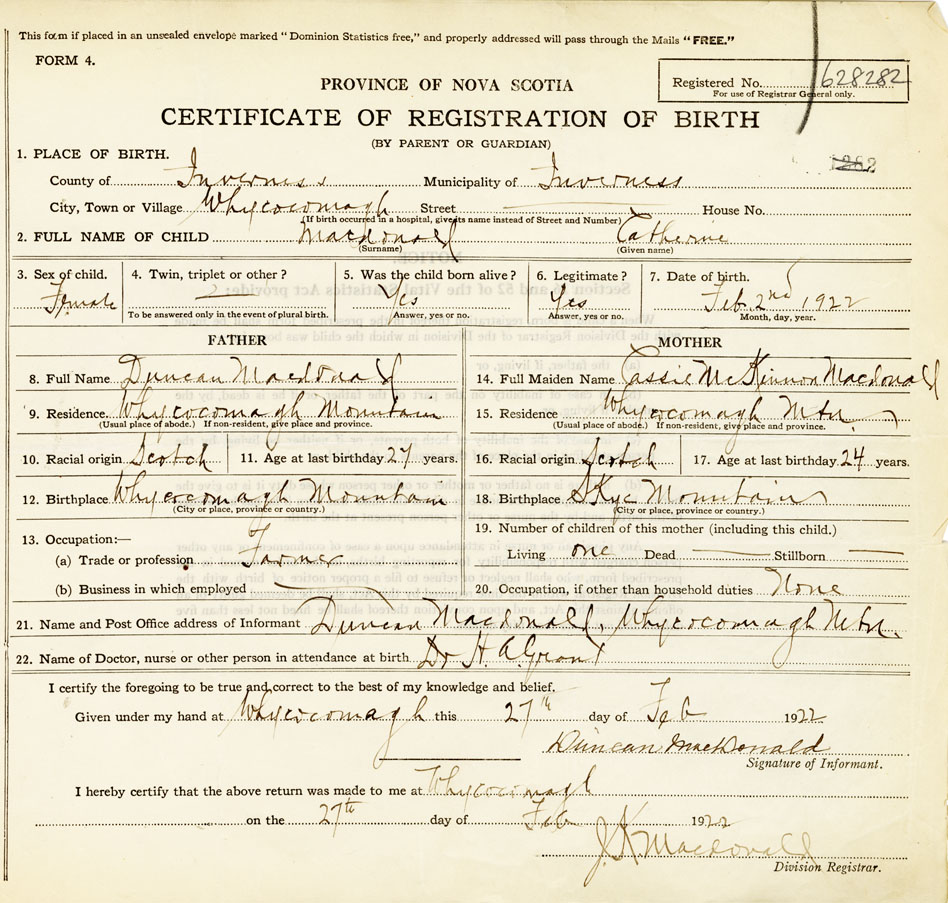 This form if placed in an unsealed envelope marked "Dominion Statistics free," and properly addressed will pass through the Mails "FREE."
FORM 4.
PROVINCE OF NOVA SCOTIA
Registered No. 628282
For use of Registrar General only.
CERTIFICATE OF REGISTRATION OF BIRTH
(BY PARENT OR GUARDIAN)
1. PLACE OF BIRTH.
County of Inverness Municipality of Inverness
City, Town or Village Whycocomagh Street House No.
(If birth occurred in a hospital, give its name instead of Street and Number)
2. FULL NAME OF CHILD Macdonald Catherine
(Surname) (Given name)
3. Sex of child. 4. Twin, triplet or other? 5. Was the child born alive? 6. Legitimate? 7. Date of birth.
Female Yes Yes Feb. 2nd, 1922
To be answered only in the event of plural birth. Answer, yes or no. Answer, yes or no. Month, day, year.
FATHER MOTHER
8. Full Name Duncan Macdonald 14. Full Maiden Name Cassie McKinnon Macdonald
9. Residence. Whycocomagh Mountain 15. Residence Whycocomagh Mtn.
(Usual place of abode.) If non-resident, give place and province. (Usual place of abode.) If non-resident, give place and province.
10. Racial origin Scotch 11. Age at last birthday 27 years. 16. Racial origin Scotch 17. Age at last birthday 24 years.
12. Birthplace Whycocomagh Mountain 18. Birthplace Skye Mountain
(City or place, province or country.) (City or place, province or country.)
13. Occupation:— 19. Number of children of this mother (including this child.)
(a) Trade or profession Farmer Living one Dead Stillborn
(b) Business in which employed 20. Occupation, if other than household duties None
21. Name and Post Office address of Informant Duncan Macdonald, Whycocomagh Mtn.
22. Name of Doctor, nurse or other person in attendance at birth. Dr H. A. Grant
I certify the foregoing to be true and correct to the best of my knowledge and belief.
Given under my hand at Whycocomagh this 27th day of Feb 1922
Duncan MacDonald
Signature of Informant.
I hereby certify that the above return was made to me at Whycocomagh
on the 27th day of Feb 1922
J. K. Macdonald
Division Registrar.